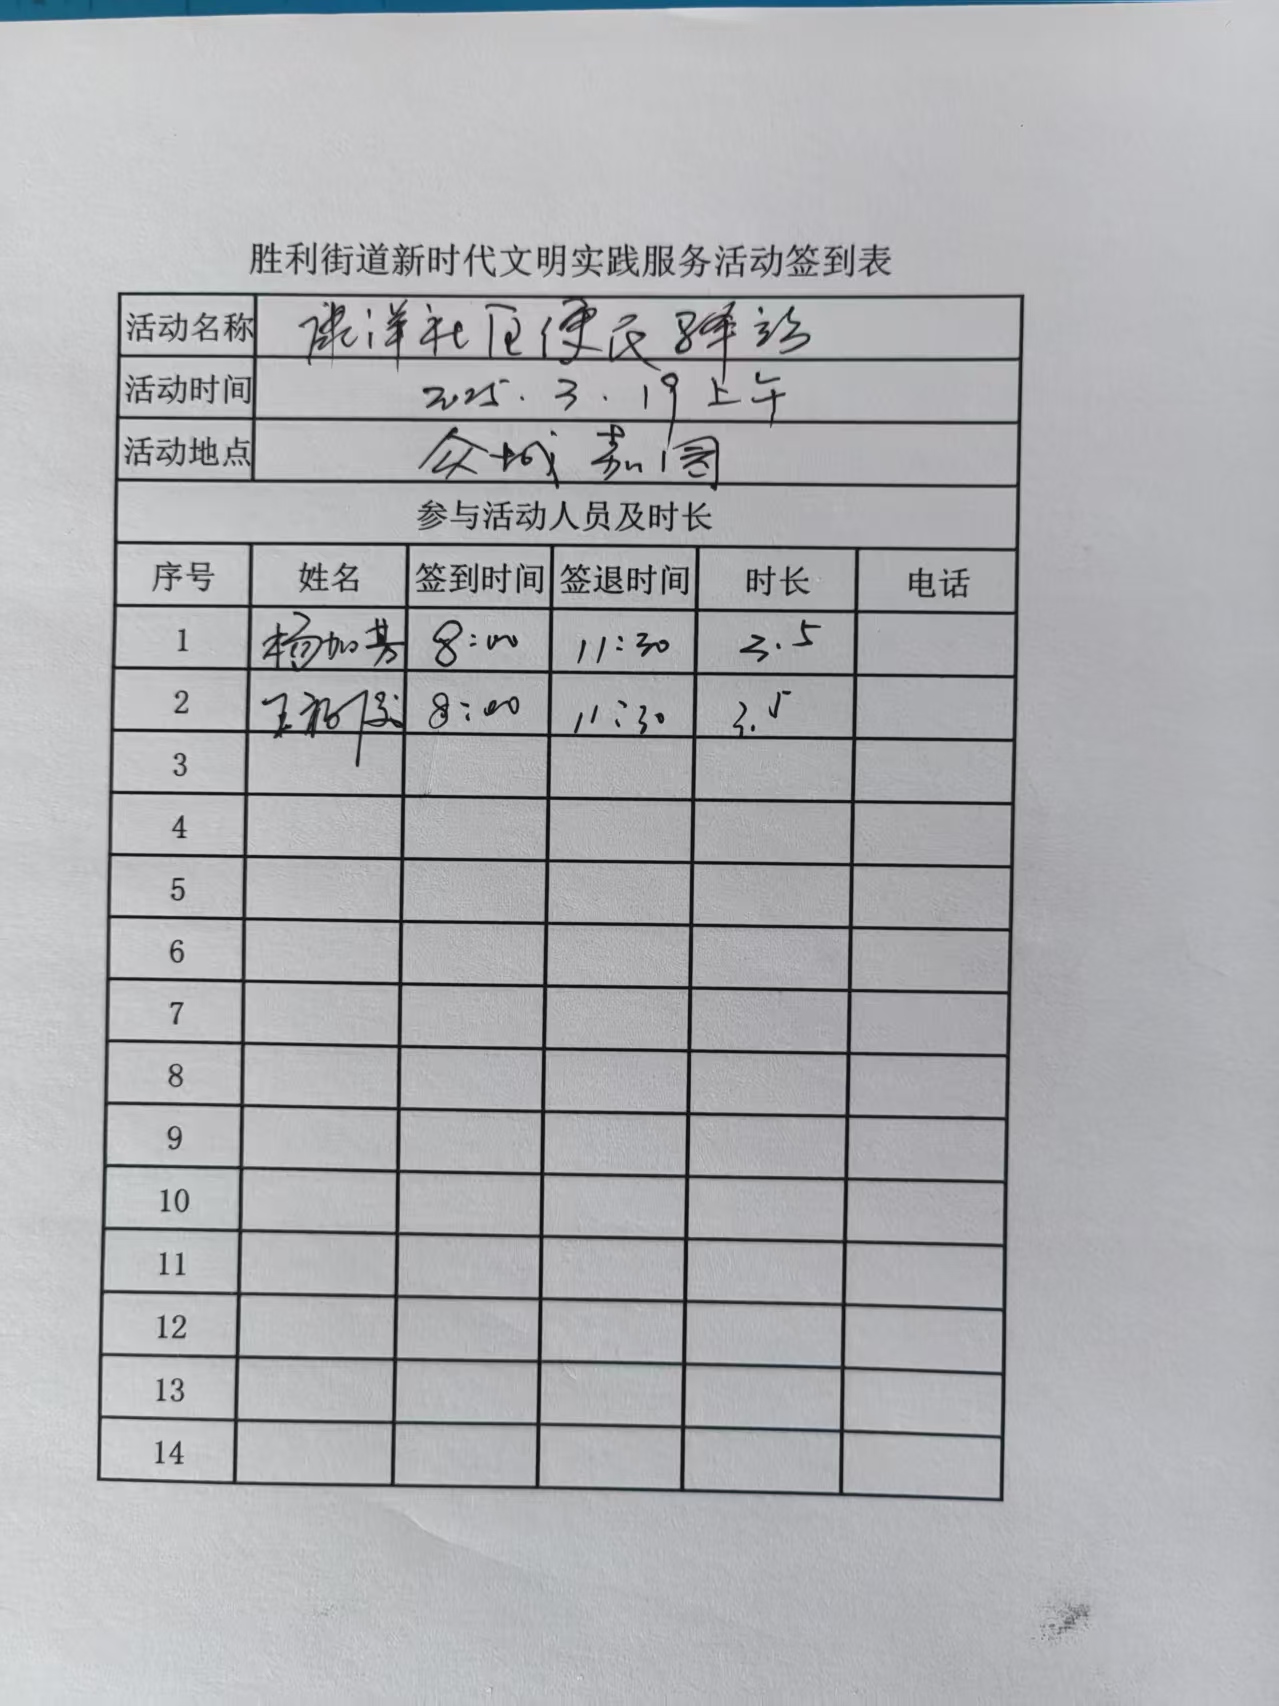 胜利街道新时代文明实践服务活动签到表
活动名称 洋社区便民驿站
活动时间 2025.3.19上午
活动地点 众城嘉园
参与活动人员及时长
序号 姓名 签到时间 签退时间 时长 电话
1 杨加芳 8:00 11:30 3.5
2 王 8:00 11:30 3.5
3
4
5
6
7
8
9
10
11
12
13
14